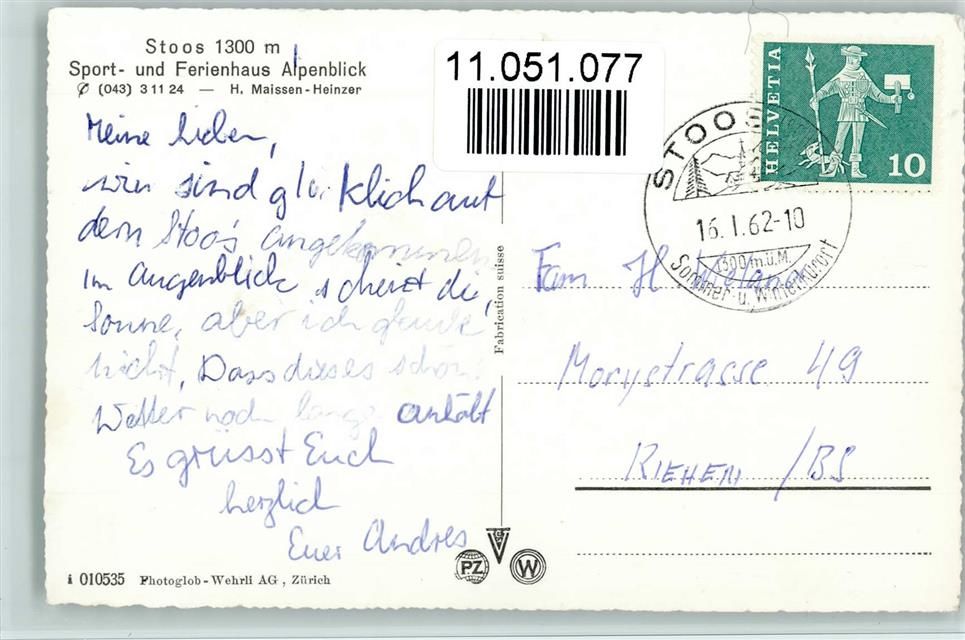 Stoos 1300 m
Sport- und Ferienhaus Alpenblick
✆ (043) 3 11 24 — H. Maissen-Heinzer
11.051.077
Meine lieben,
wir sind glücklich auf
dem Stoos angekommen
Im Augenblick scheint die
Sonne, aber ich glaube
nicht, Dass dieses schöne
Wetter noch lange anhält
Es grüsst Euch
herzlich
Euer Andres
i 010535 Photoglob-Wehrli AG, Zürich
Fabrication suisse
PZ
W
HELVETIA
10
STOOS
16.I.62-10
1300 m.ü.M.
Sommer- u. Winterkurort
Fam H
Morystrasse 49
RIEHEN /BS